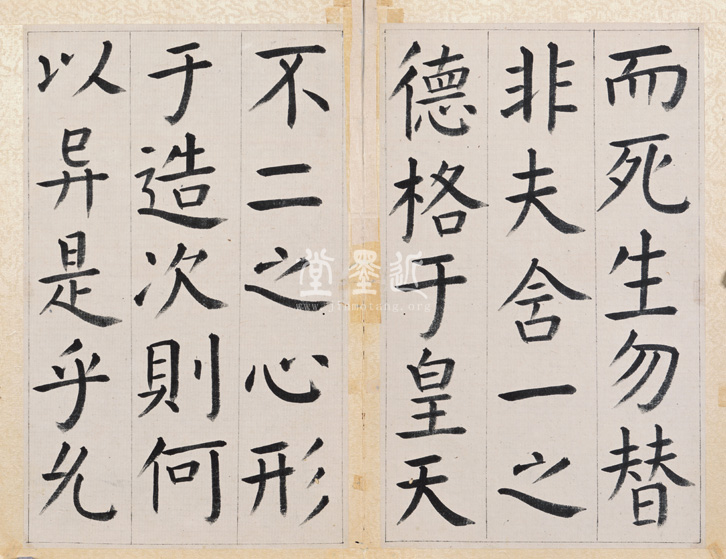 而死生勿替
非夫含一之
德格于皇天
不二之心形
于造次則何
以异是乎允
近墨堂
www.jinmotang.org